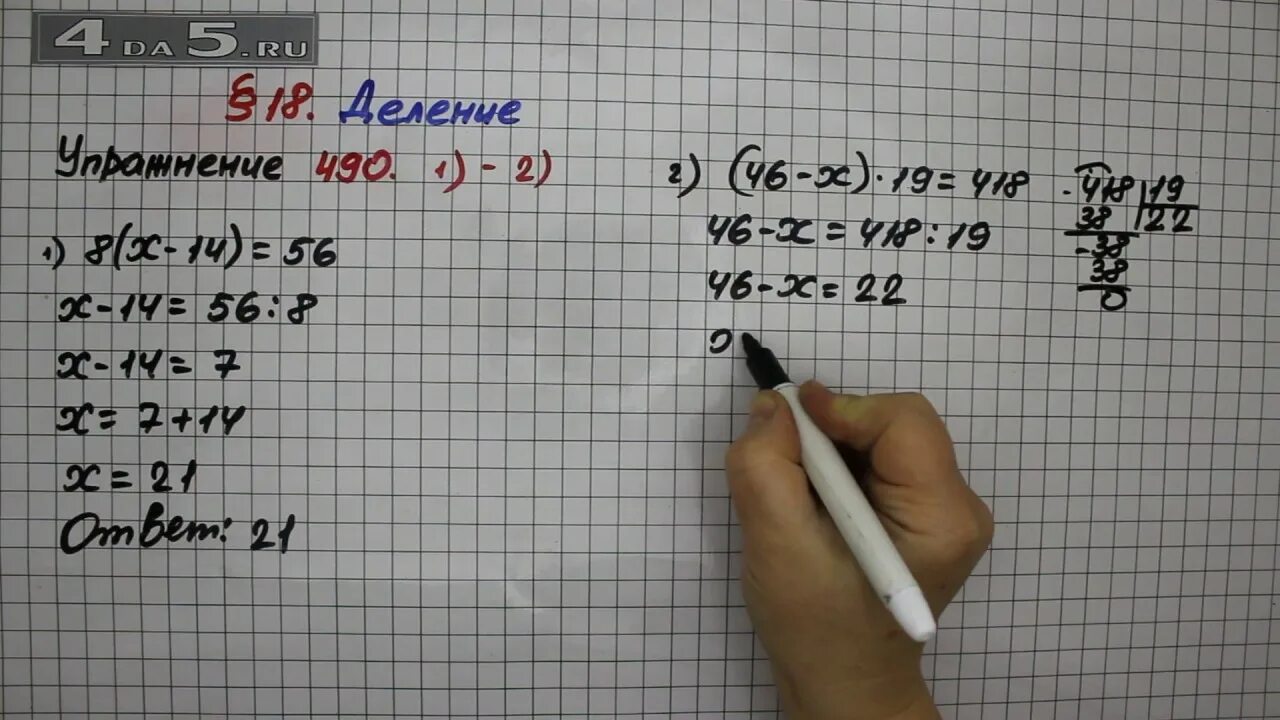 4DA5.RU
§18. Деление
Упражнение 490. 1) - 2)
1) 8(x-14)=56
x-14=56:8
x-14=7
x=7+14
x=21
Ответ: 21
2) (46-x)·19=418
46-x=418:19
46-x=22
-418 19
38 22
-38
38
0